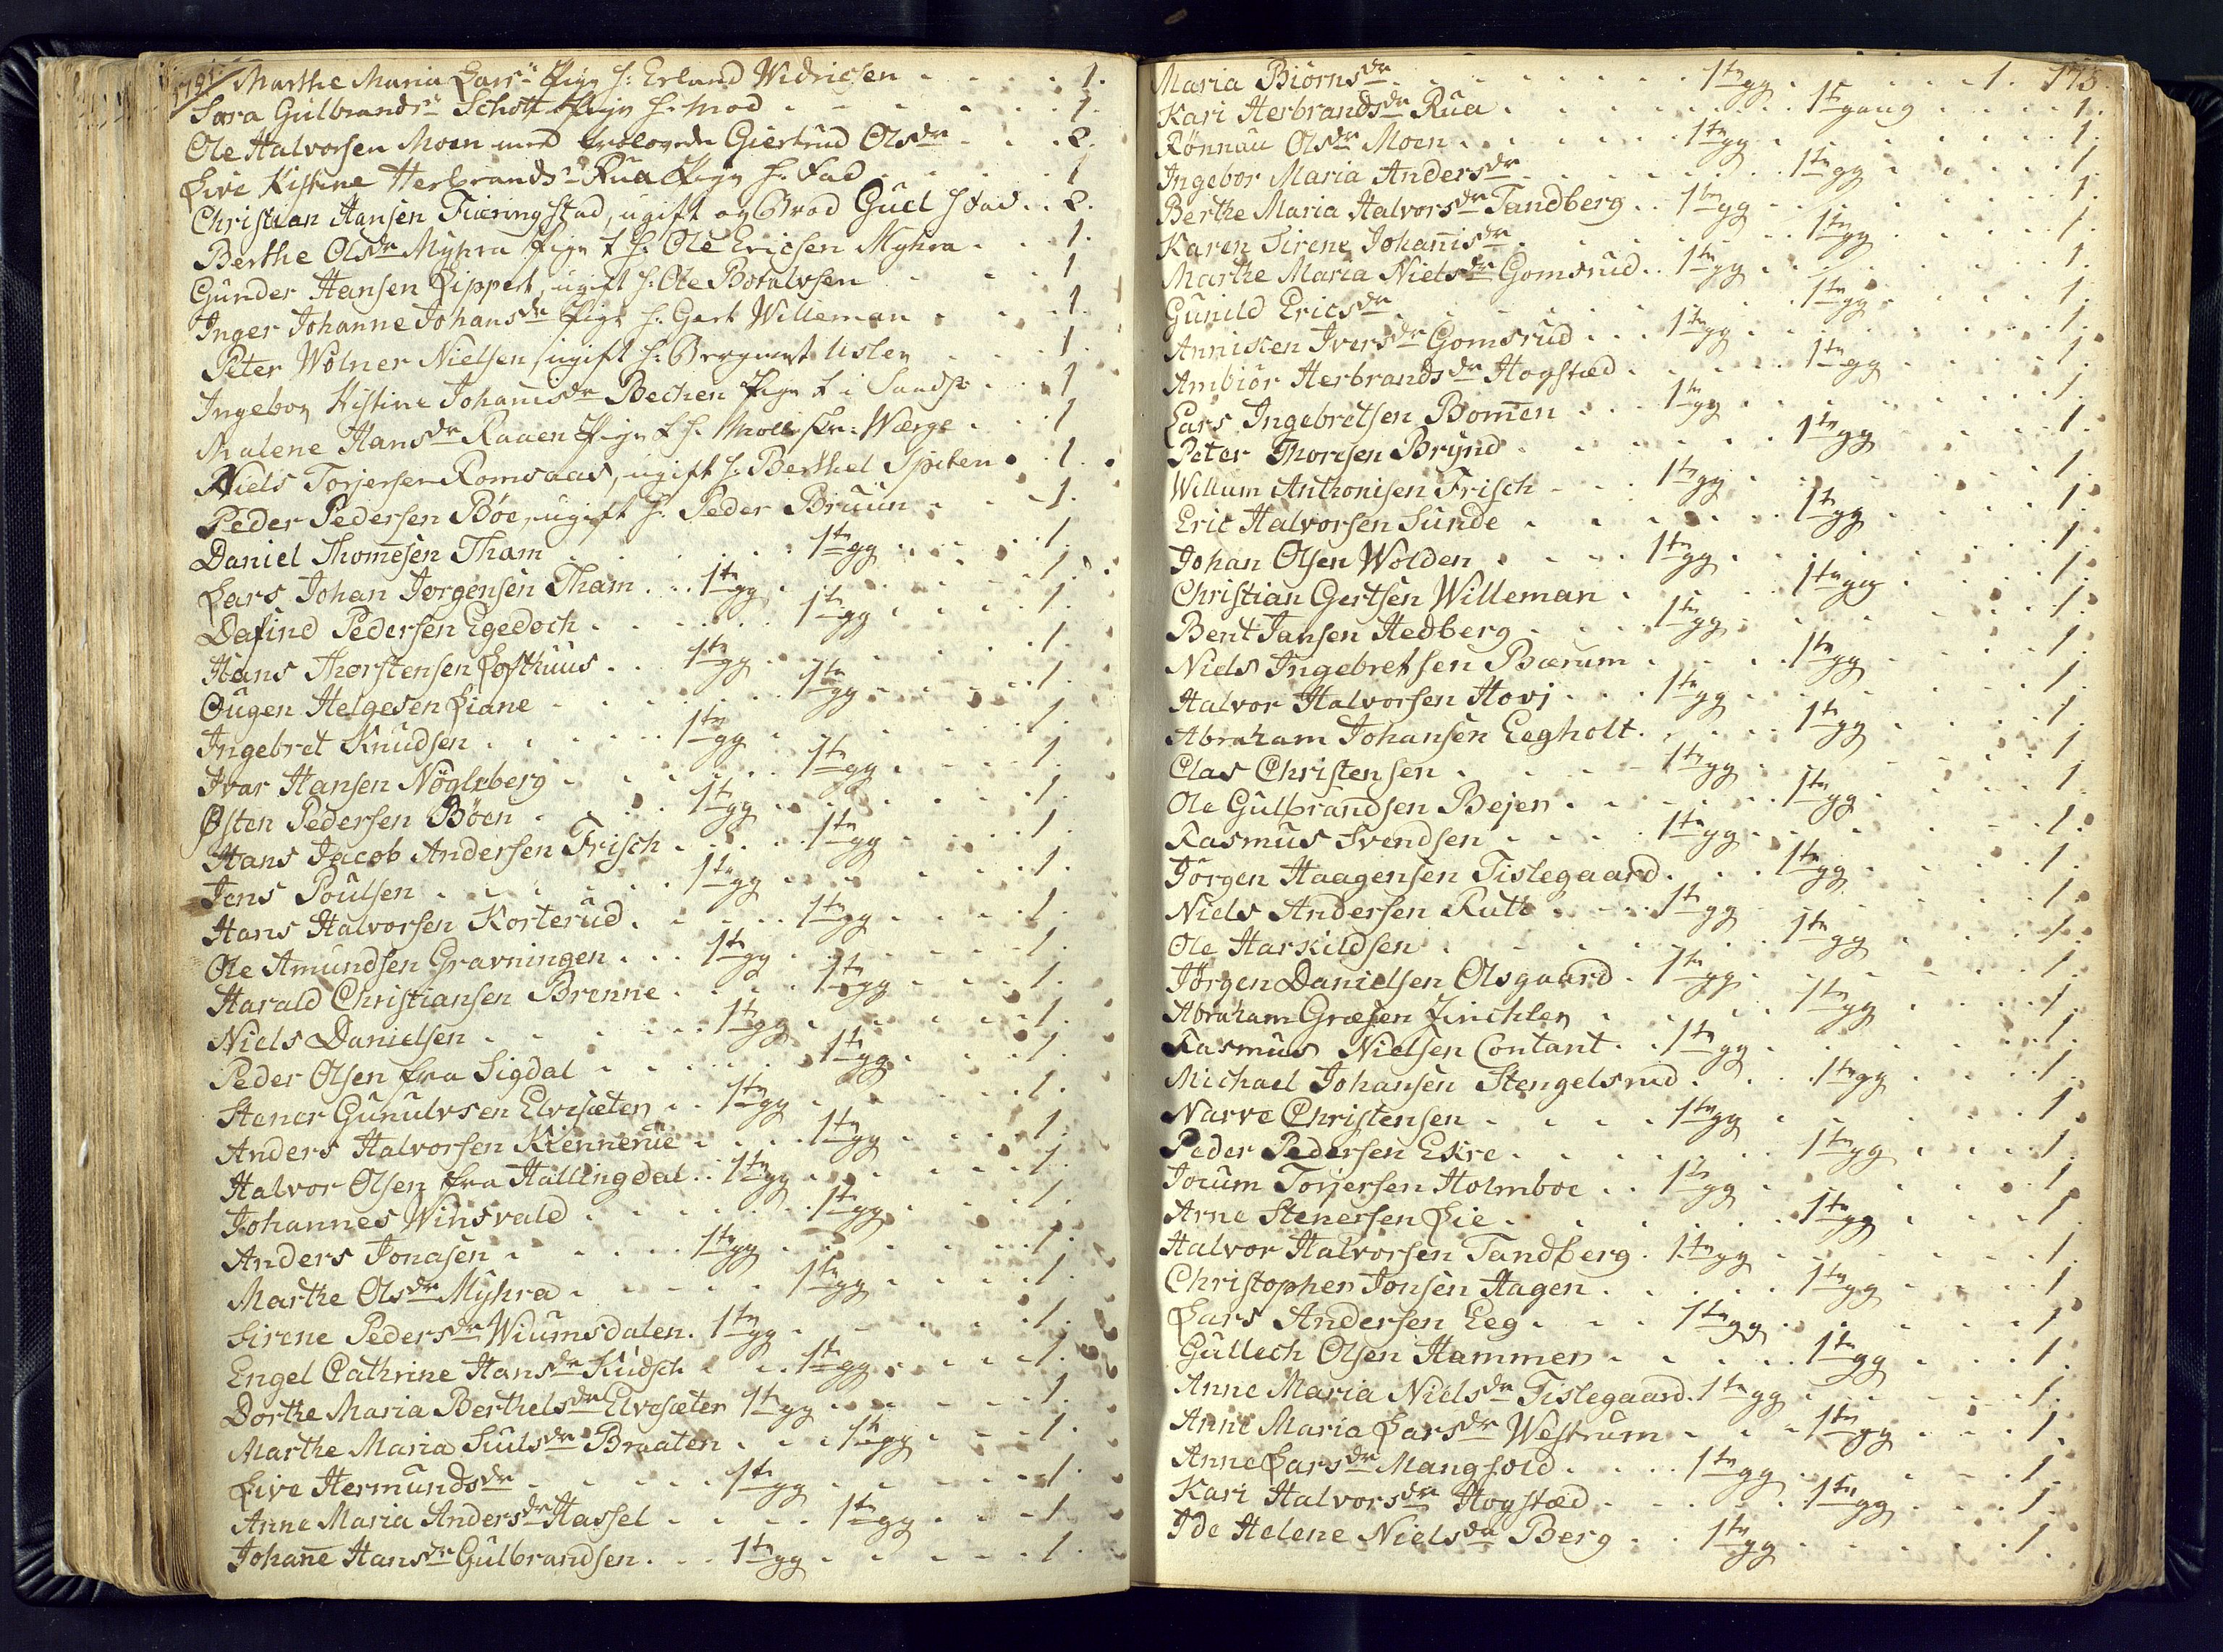 1791 Marthe Maria Larsdr Pige h: Erland Widricsen 1.
Sara Gulbrandsdr Schott Pige h: Mod 1.
Ole Halvorsen Moen med trolovede Giertrud Olsdr 2.
Live Kistine Herbrandsdr Rua Pige h: Fad 1
Christian Hansen Fiæringstad, ugift og Brod Gucl hos fad 2.
Berthe Olsdr Myhra Pige t h: Ole Ericsen Myhra 1.
Gunder Hansen Lippert, ugift h: Ole Botolvsen 1
Inger Johanne Johansdr Pige h: Gert Willeman 1.
Peter Wölner Nielsen, ugift h: Bergamt 1
Ingebor Kistine Johanisdr Bechen Pige t i Sands: 1
Malene Hansdr Raaen Pige t h: Wærge 1
Niels Torjersen Romsaas, ugift h: Berthel Spiten 1.
Peder Pedersen Böe, ugift h: Peder Bruun 1.
Daniel Thomesen Tham 1te gg 1.
Lars Johan Jørgensen Tham 1te gg 1.
Dafind Pedersen Egedoch 1te gg 1.
Hans Thorstensen Lofthuus 1te gg 1.
Ougen Helgesen Liane 1te gg 1.
Ingebret Knudsen 1te gg 1.
Ivar Hansen Nögleberg 1te gg 1.
Østen Pedersen Böen 1te gg 1.
Hans Jacob Andersen Frisch 1te gg 1.
Jens Poulsen 1te gg 1.
Hans Halvorsen Korterud 1te gg 1.
Ole Amundsen Gravningen 1te gg 1.
Harald Christiansen Brenne 1te gg 1.
Niels Danielsen 1te gg 1.
Peder Olsen fra Sigdal 1te gg 1.
Stener Gunulvsen Elvesæter 1te gg 1.
Anders Halvorsen Kiennerüe 1te gg 1.
Halvor Olsen fra Hallingdal 1te gg 1.
Johannes Winsvald 1te gg 1.
Anders Jonasen 1te gg 1.
Marthe Olsdr Myhra 1te gg 1.
Sirene Pedersdr Wiumsdalen 1te gg 1.
Engel Cathrine Hansdr Kudsch 1te gg 1.
Dorthe Maria Berthelsdr Elvesæter 1te gg 1.
Marthe Maria Siulsdr Braaten 1te gg 1.
Live Hermundsdr 1te gg 1.
Anne Maria Andersdr Hassel 1te gg 1
Johane Hansdr Gulbrandsen 1te gg 1.
Maria Biörnsdr 1te gg 1. 175.
Kari Herbrandsdr Rua 1te gang 1.
Rönnau Olsdr Moen 1te gg 1.
Ingebor Maria Andersdr 1te gg 1.
Berthe Maria Halvorsdr Tandberg 1te gg 1.
Karen Sirene Johanisdr 1te gg 1.
Marthe Maria Nielsdr Gomsrud 1te gg 1.
Gunild Ericsdr 1te gg 1.
Annicken Iversdr Gomsrud 1te gg 1.
Ambiör Herbrandsdr Hogstæd 1te gg 1.
Lars Ingebretsen Bomen 1te gg 1.
Peter Thoresen Brynd 1te gg 1.
Willum Anthonisen Frisch 1te gg 1.
Eric Halvorsen Sunde 1te gg 1.
Johan Olsen Wolden 1te gg 1.
Christian Gertsen Willeman 1te gg 1.
Bent Jansen Hedberg 1te gg 1.
Niels Ingebretsen Bærum 1te gg 1.
Halvor Halvorsen Hovj 1te gg 1.
Abraham Johansen Eegholt 1te gg 1.
Clas Christensen 1te gg 1.
Ole Gulbrandsen Bejer 1te gg 1.
Rasmus Svendsen 1te gg 1.
Jörgen Haagensen Tislegaard 1te gg 1.
Niels Andersen Rutt 1te gg 1.
Ole Harkildsen 1te gg 1.
Jørgen Danielsen Olsgaard 1te gg 1.
Abraham Græsen Zinchler 1te gg 1.
Rasmus Nielsen Contant 1te gg 1.
Michael Johansen Stengelsrud 1te gg 1.
Narve Christensen 1te gg 1.
Peder Pedersen Ekre 1te gg 1.
Jocum Torjersen Holmboe 1te gg 1
Arne Stenersen Lie 1te gg 1.
Halvor Halvorsen Tandberg 1te gg 1.
Christopher Jonsen Hagen 1te gg 1
Lars Andersen Eeg 1te gg 1
Gullech Olsen Hammer 1te gg 1.
Anne Maria Nielsdr Tislegaard 1te gg 1.
Anne Maria Larsdr Westrum 1te gg 1.
Anne Larsdr Mangfold 1te gg 1.
Kari Halvorsdr Hogstæd 1te gg 1.
Ide Helene Nielsdr Berg 1te gg 1.